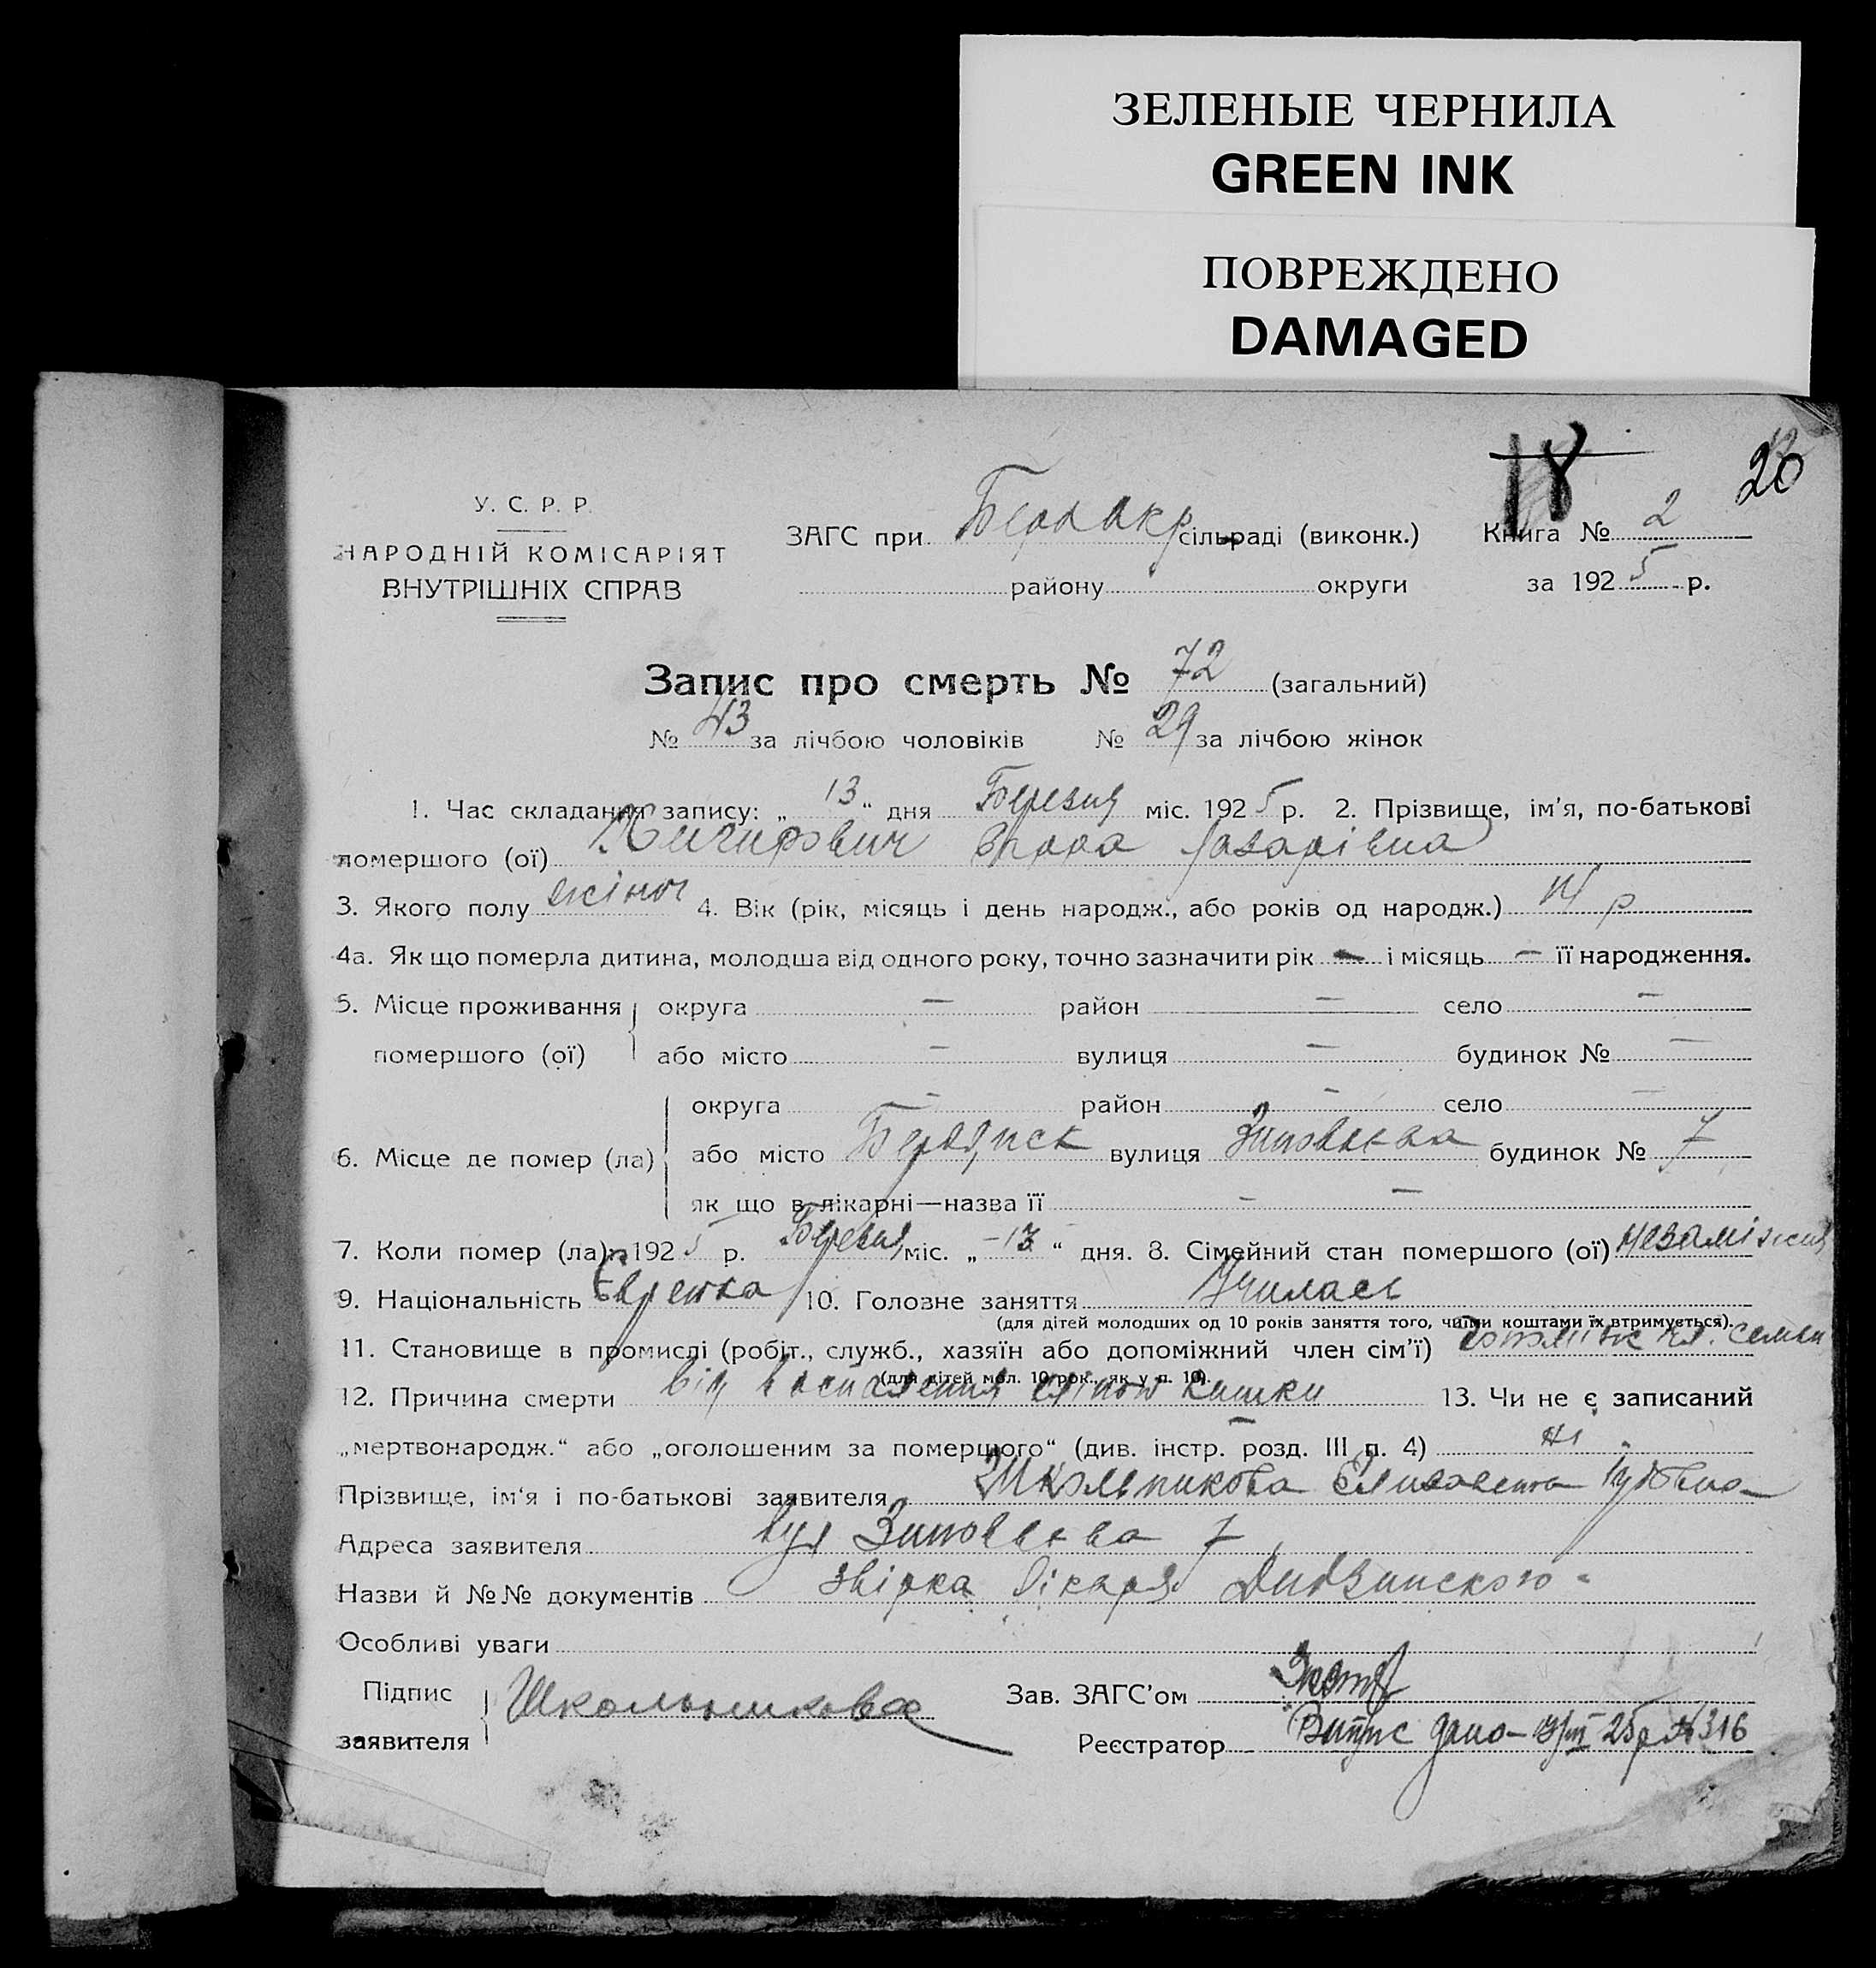 ЗЕЛЕНЫЕ ЧЕРНИЛА
GREEN INK
ПОВРЕЖДЕНО
DAMAGED
18 20
У. С. Р. Р.
НАРОДНІЙ КОМІСАРІЯТ
ВНУТРІШНІХ СПРАВ
ЗАГС при сільраді (виконк.) Книга № 2
району округи за 1925 р.
Запис про смерть № 72 (загальний)
№ 43 за лічбою чоловіків № 29 за лічбою жінок
1. Час складання запису: „13“ дня Березня міс. 1925 р. 2. Прізвище, ім'я, по-батькові
помершого (ої) Лазарівна
3. Якого полу жіноч 4. Вік (рік, місяць і день народж., або років од народж.) р
4а. Як що померла дитина, молодша від одного року, точно зазначити рік — і місяць — її народження.
5. Місце проживання округа — район — село —
помершого (ої) або місто — вулиця — будинок № —
округа — район — село —
6. Місце де помер (ла) або місто Бердянск вулиця Зиновьева будинок № 7
як що в лікарні—назва її — —
7. Коли помер (ла): 1925 р. Березня міс. „13“ дня. 8. Сімейний стан помершого (ої) незаміжня
9. Національність Еврейка 10. Головне заняття Училась
(для дітей молодших од 10 років заняття того, чиїми коштами їх втримується).
11. Становище в промислі (робіт., служб., хазяїн або допоміжний член сім'ї) семьи
(для дітей мол. 10 рок., як у п. 10).
12. Причина смерти від воспаления кишки 13. Чи не є записаний
„мертвонародж.“ або „оголошеним за помершого“ (див. інстр. розд. III п. 4) ні
Прізвище, ім'я і по-батькові заявителя Школьникова Елизавета
Адреса заявителя вул Зиновьева 7
Назви й №№ документів лікаря
Особливі уваги
Підпис Школьникова Зав. ЗАГС'ом
заявителя Реєстратор Випис дано 25 р № 316